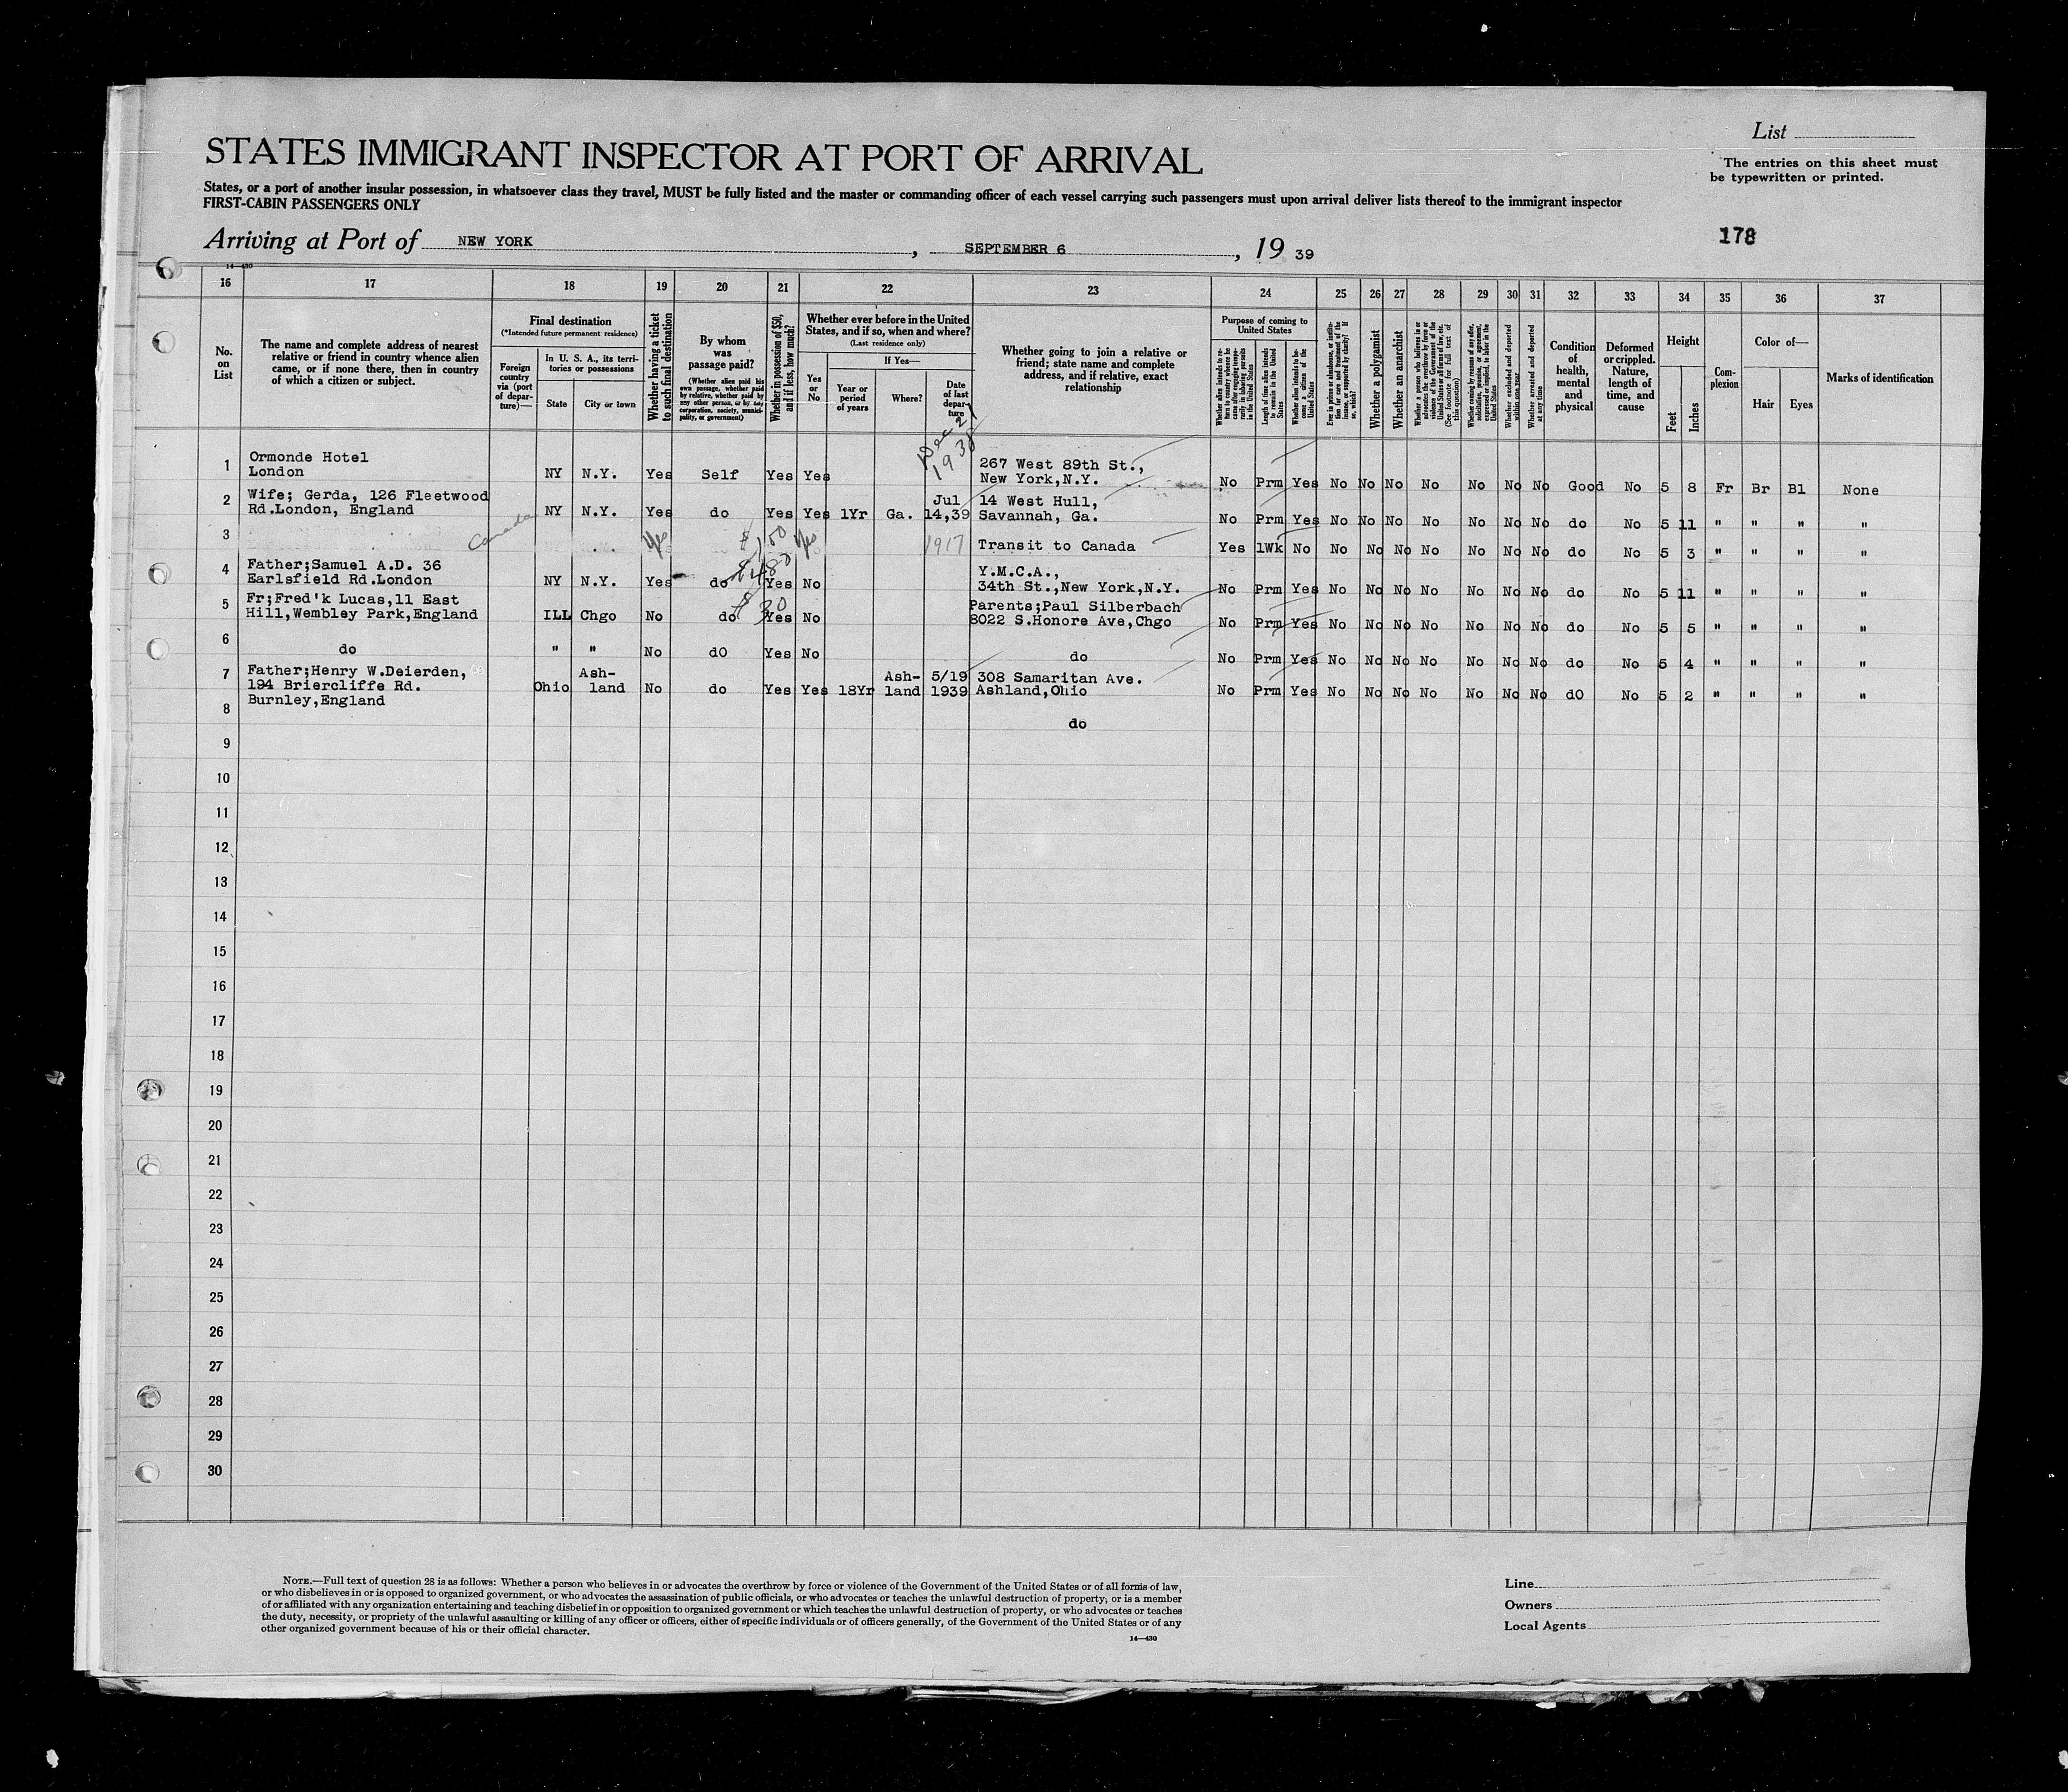 List
STATES IMMIGRANT INSPECTOR AT PORT OF ARRIVAL
The entries on this sheet must
be typewritten or printed.
States, or a port of another insular possession, in whatsoever class they travel, MUST be fully listed and the master or commanding officer of each vessel carrying such passengers must upon arrival deliver lists thereof to the immigrant inspector
FIRST-CABIN PASSENGERS ONLY
Arriving at Port of NEW YORK, SEPTEMBER 6, 19 39
178
14—430
16 17 18 19 20 21 22 23 24 25 26 27 28 29 30 31 32 33 34 35 36 37
No.
on
List
The name and complete address of nearest
relative or friend in country whence alien
came, or if none there, then in country
of which a citizen or subject.
Final destination
(*Intended future permanent residence)
Foreign
country
via (port
of depar-
ture)—
In U. S. A., its terri-
tories or possessions
State
City or town
Whether having a ticket
to such final destination
By whom
was
passage paid?
(Whether alien paid his
own passage, whether paid
by relative, whether paid by
any other person, or by any
corporation, society, munici-
pality, or government)
Whether in possession of $50,
and if less, how much?
Whether ever before in the United
States, and if so, when and where?
(Last residence only)
Yes
or
No
If Yes—
Year or
period
of years
Where?
Date
of last
depar-
ture
Whether going to join a relative or
friend; state name and complete
address, and if relative, exact
relationship
Purpose of coming to
United States
Whether alien intends to re-
turn to country whence he
came after engaging tempo-
rarily in laboring pursuits
in the United States
Length of time alien intends
to remain in the United
States
Whether alien intends to be-
come a citizen of the
United States
Ever in prison or almshouse, or institu-
tion for care and treatment of the
insane, or supported by charity? If
so, which?
Whether a polygamist
Whether an anarchist
Whether a person who believes in or
advocates the overthrow by force or
violence of the Government of the
United States or all forms of law, etc.
(See footnote for full text of
this question)
Whether coming by reason of any offer,
solicitation, promise, or agreement,
expressed or implied, to labor in the
United States
Whether excluded and deported
within one year
Whether arrested and deported
at any time
Condition
of
health,
mental
and
physical
Deformed
or crippled.
Nature,
length of
time, and
cause
Height
Feet
Inches
Com-
plexion
Color of—
Hair
Eyes
Marks of identification
Dec 21
1938
1 Ormonde Hotel
London NY N.Y. Yes Self Yes Yes 267 West 89th St.,
New York,N.Y. No Prm Yes No No No No No No No Good No 5 8 Fr Br Bl None
2 Wife; Gerda, 126 Fleetwood
Rd.London, England NY N.Y. Yes do Yes Yes 1Yr Ga. Jul
14,39 14 West Hull,
Savannah, Ga. No Prm Yes No No No No No No No do No 5 11 " " " "
3 Canada Yes $100 Yes 1917 Transit to Canada Yes 1Wk No No No No No No No No do No 5 3 " " " "
4 Father;Samuel A.D. 36
Earlsfield Rd.London NY N.Y. Yes do $480 Yes No Y.M.C.A.,
34th St.,New York,N.Y. No Prm Yes No No No No No No No do No 5 11 " " " "
5 Fr;Fred'k Lucas,11 East
Hill,Wembley Park,England ILL Chgo No do $30 Yes No Parents;Paul Silberbach
8022 S.Honore Ave,Chgo No Prm Yes No No No No No No No do No 5 5 " " " "
6 do " " No dO Yes No do No Prm Yes No No No No No No No do No 5 4 " " " "
7 Father;Henry W.Deierden,
194 Briercliffe Rd.
Burnley,England Ohio Ash-
land No do Yes Yes 18Yr Ash-
land 5/19
1939 308 Samaritan Ave.
Ashland,Ohio No Prm Yes No No No No No No No dO No 5 2 " " " "
8 do
9
10
11
12
13
14
15
16
17
18
19
20
21
22
23
24
25
26
27
28
29
30
NOTE.—Full text of question 28 is as follows: Whether a person who believes in or advocates the overthrow by force or violence of the Government of the United States or of all forms of law,
or who disbelieves in or is opposed to organized government, or who advocates the assassination of public officials, or who advocates or teaches the unlawful destruction of property, or is a member
of or affiliated with any organization entertaining and teaching disbelief in or opposition to organized government or which teaches the unlawful destruction of property, or who advocates or teaches
the duty, necessity, or propriety of the unlawful assaulting or killing of any officer or officers, either of specific individuals or of officers generally, of the Government of the United States or of any
other organized government because of his or their official character.
14—430
Line
Owners
Local Agents